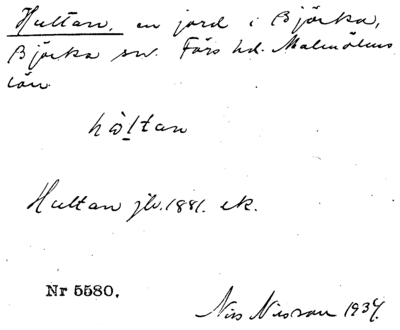 Hultan, en jord i Björka,
Björka sn. Färs hd. Malmöhus
län.
hò̱ltan
Hultan jb. 1881. ek.
Nr 5580.
Nils Nilsson 1934.